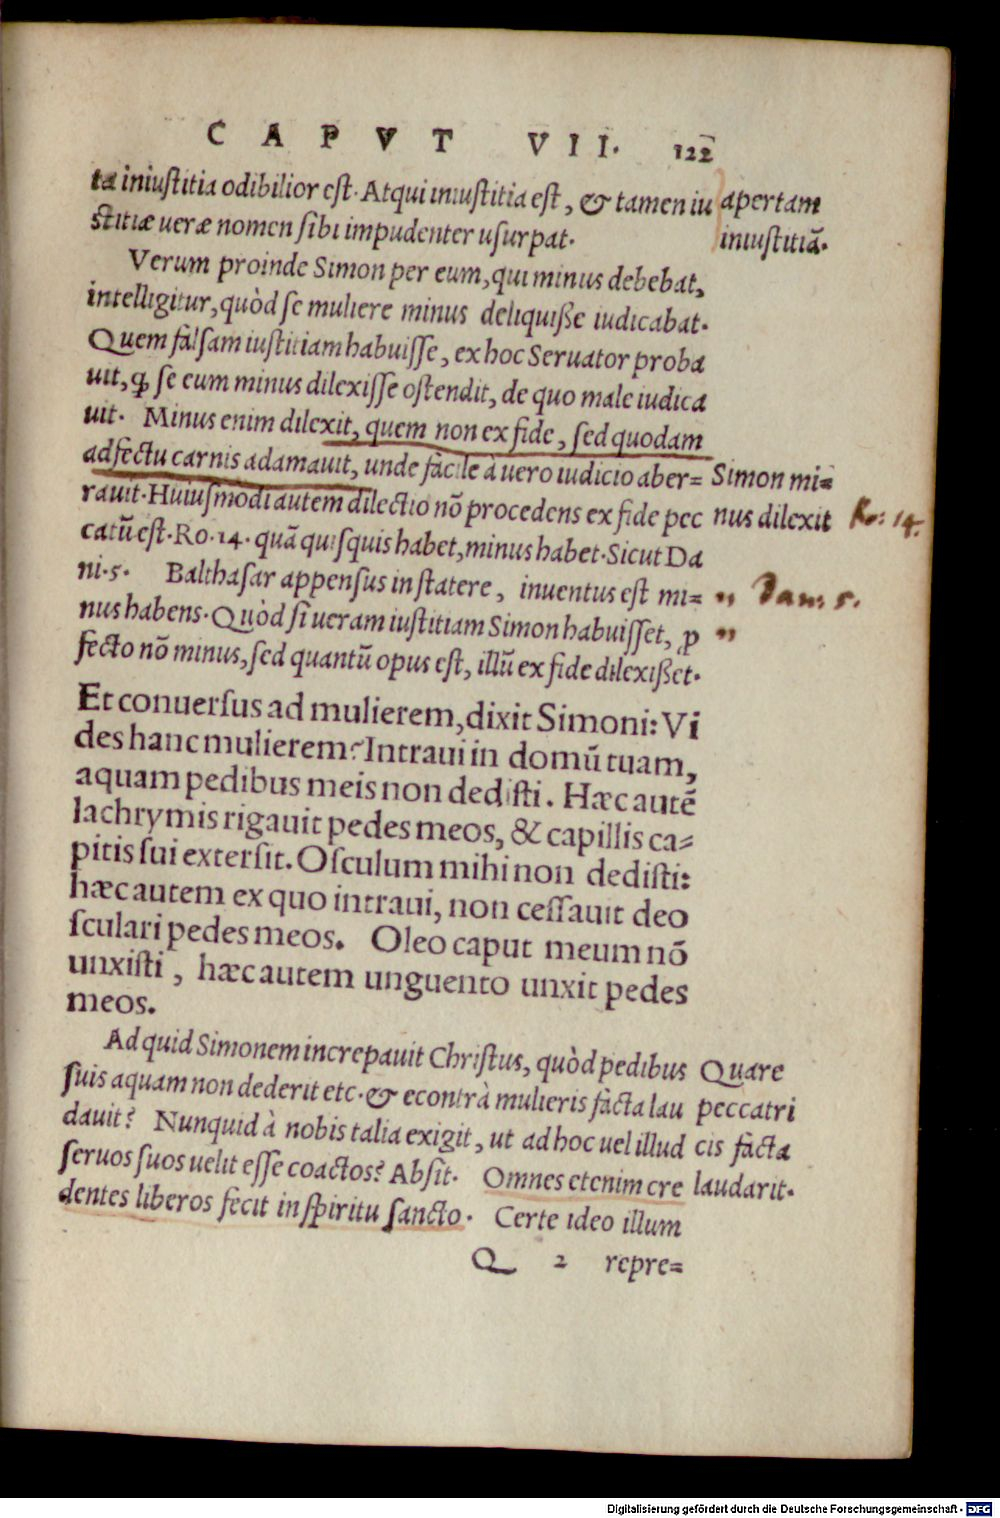 CAPVT VII. 122
ta iniustitia odibilior est. Atqui iniustitia est, & tamen iu
stitiæ ueræ nomen sibi impudenter usurpat.
apertam
iniustitiā.
Verum proinde Simon per eum, qui minus debebat,
intelligitur, quòd se muliere minus deliquisse iudicabat.
Quem falsam iustitiam habuisse, ex hoc Seruator proba
uit, ꝙ se eum minus dilexisse ostendit, de quo male iudica
uit. Minus enim dilexit, quem non ex fide, sed quodam
adfectu carnis adamauit, unde facile à uero iudicio aber=
rauit. Huiusmodi autem dilectio nō procedens ex fide pec
catū est. Ro. 14. quā quisquis habet, minus habet. Sicut Da
ni. 5. Balthasar appensus in statere, inuentus est mi=
nus habens. Quòd si ueram iustitiam Simon habuisset, ꝓ
fecto nō minus, sed quantū opus est, illū ex fide dilexisset.
Simon mi=
nus dilexit
Ro: 14.
„ Dan: 5.
„
Et conuersus ad mulierem, dixit Simoni: Vi
des hanc mulierem? Intraui in domū tuam,
aquam pedibus meis non dedisti. Hæc autē
lachrymis rigauit pedes meos, & capillis ca=
pitis sui extersit. Osculum mihi non dedisti:
hæc autem ex quo intraui, non cessauit deo
sculari pedes meos. Oleo caput meum nō
unxisti, hæc autem unguento unxit pedes
meos.
Ad quid Simonem increpauit Christus, quòd pedibus
suis aquam non dederit etc. & econtrà mulieris facta lau
dauit? Nunquid à nobis talia exigit, ut ad hoc uel illud
seruos suos uelit esse coactos? Absit. Omnes etenim cre
dentes liberos fecit in spiritu sancto. Certe ideo illum
Quare
peccatri
cis facta
laudarit.
Q 2 repre=
Digitalisierung gefördert durch die Deutsche Forschungsgemeinschaft - DFG